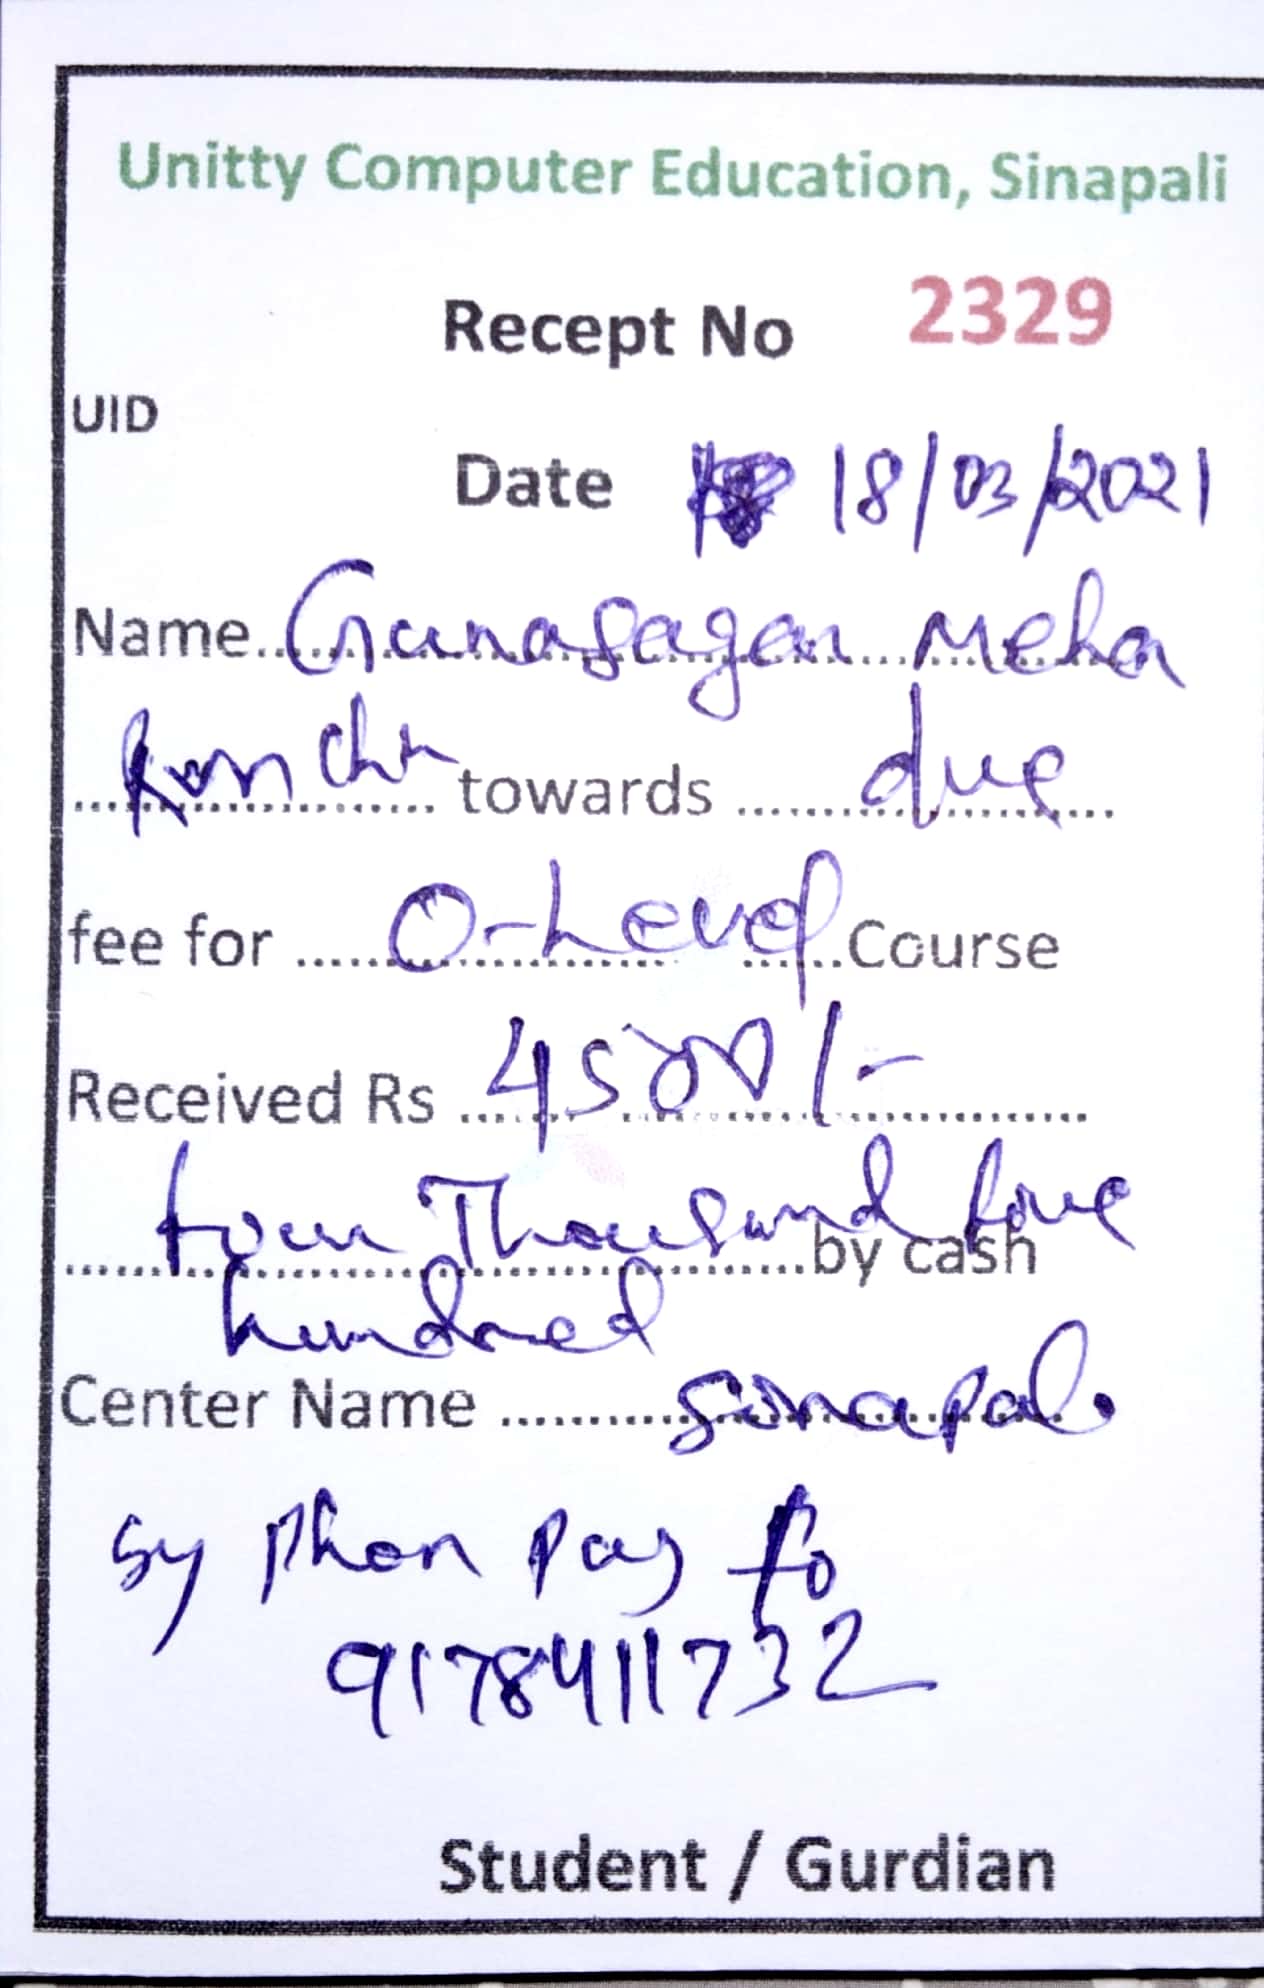 Unitty Computer Education, Sinapali
Recept No 2329
UID
Date 18/03/2021
Name Gunasagar Meher
towards due
fee for O-Level Course
Received Rs 4500/-
four Thousand five
by cash
hundred
Center Name Sinapali
by Phon Pay to
9178411732
Student / Gurdian